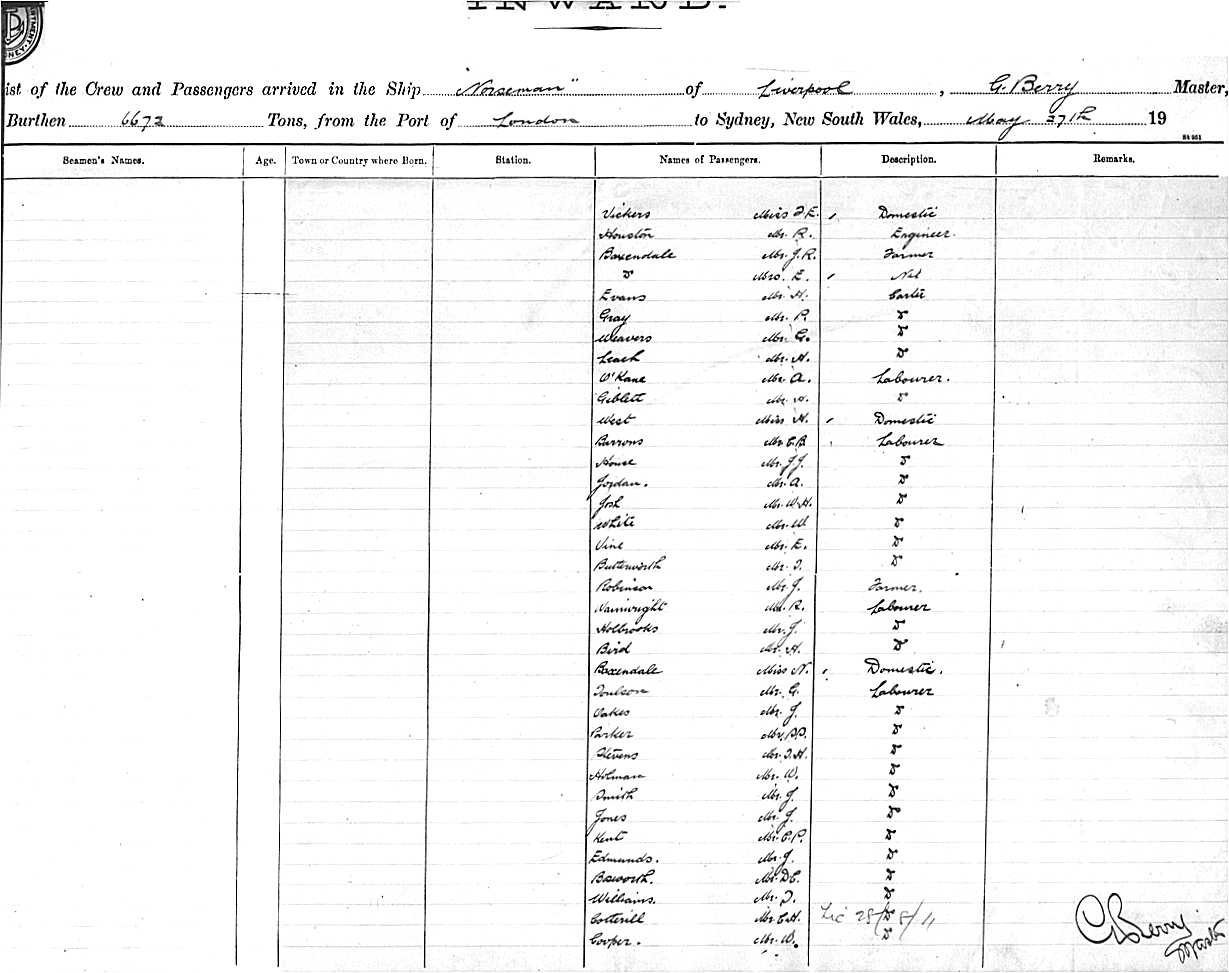 INWARD.
ist of the Crew and Passengers arrived in the Ship "Norseman" of Liverpool, G. Berry Master,
Burthen 6672 Tons, from the Port of London to Sydney, New South Wales, May 27th 19
Seamen's Names. Age. Town or Country where Born. Station. Names of Passengers. Description. Remarks.
Vickers Miss F E. Domestic
Houston Mr. R. Engineer.
Baxendale Mr. J. R. Farmer
Do Mrs. E. Nil
Evans Mr. H. Carter
Gray Mr. P. Do
Weavers Mr. G. Do
Leach Mr. H. Do
O'Kane Mr. A. Labourer.
Giblett Mr. H. Do
West Miss H. Domestic
Barrons Mr. C. B. Labourer
House Mr. J. J. Do
Jordan. Mr. A. Do
Josh Mr. W. H. Do
White Mr. W Do
Vine Mr. E. Do
Butterworth Mr. T. Do
Robinson Mr. J. Farmer.
Wainwright Mr. R. Labourer
Holbrooks Mr. J. Do
Bird Mr. H. Do
Baxendale Miss N. Domestic.
Toulson Mr. G. Labourer
Oakes Mr. J. Do
Parker Mr. Do
Stevens Mr. T. H. Do
Holman Mr. W. Do
Smith Mr. J. Do
Jones Mr. J. Do
Kent Mr. C. P. Do
Edmunds. Mr. J. Do
Boxworth. Mr. D C. Do
Williams. Mr. T. Do
Cotterill Mr. C. H. Do
Cooper. Mr. W. Do
G Berry
Master